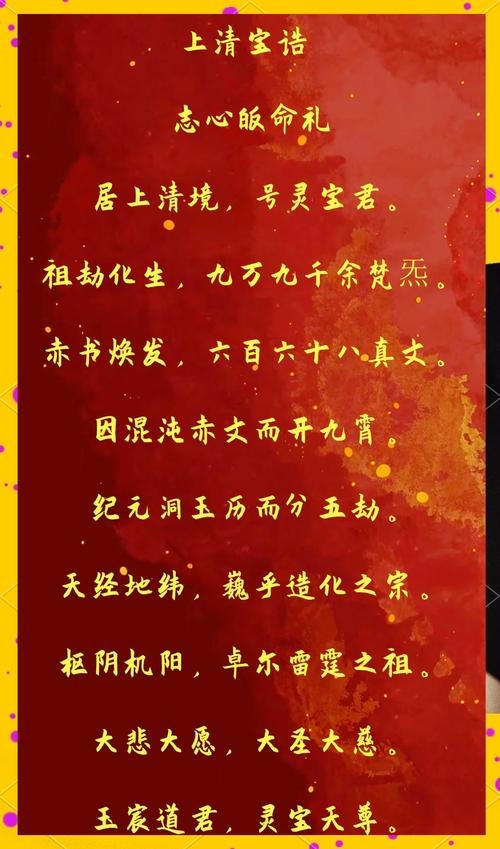 上清宝诰
志心皈命礼
居上清境，号灵宝君。
祖劫化生，九万九千余梵炁。
赤书焕发，六百六十八真丈。
因混沌赤丈而开九霄。
纪元洞玉历而分五劫。
天经地纬，巍乎造化之宗。
枢阴机阳，卓尔雷霆之祖。
大悲大愿，大圣大慈。
玉宸道君，灵宝天尊。